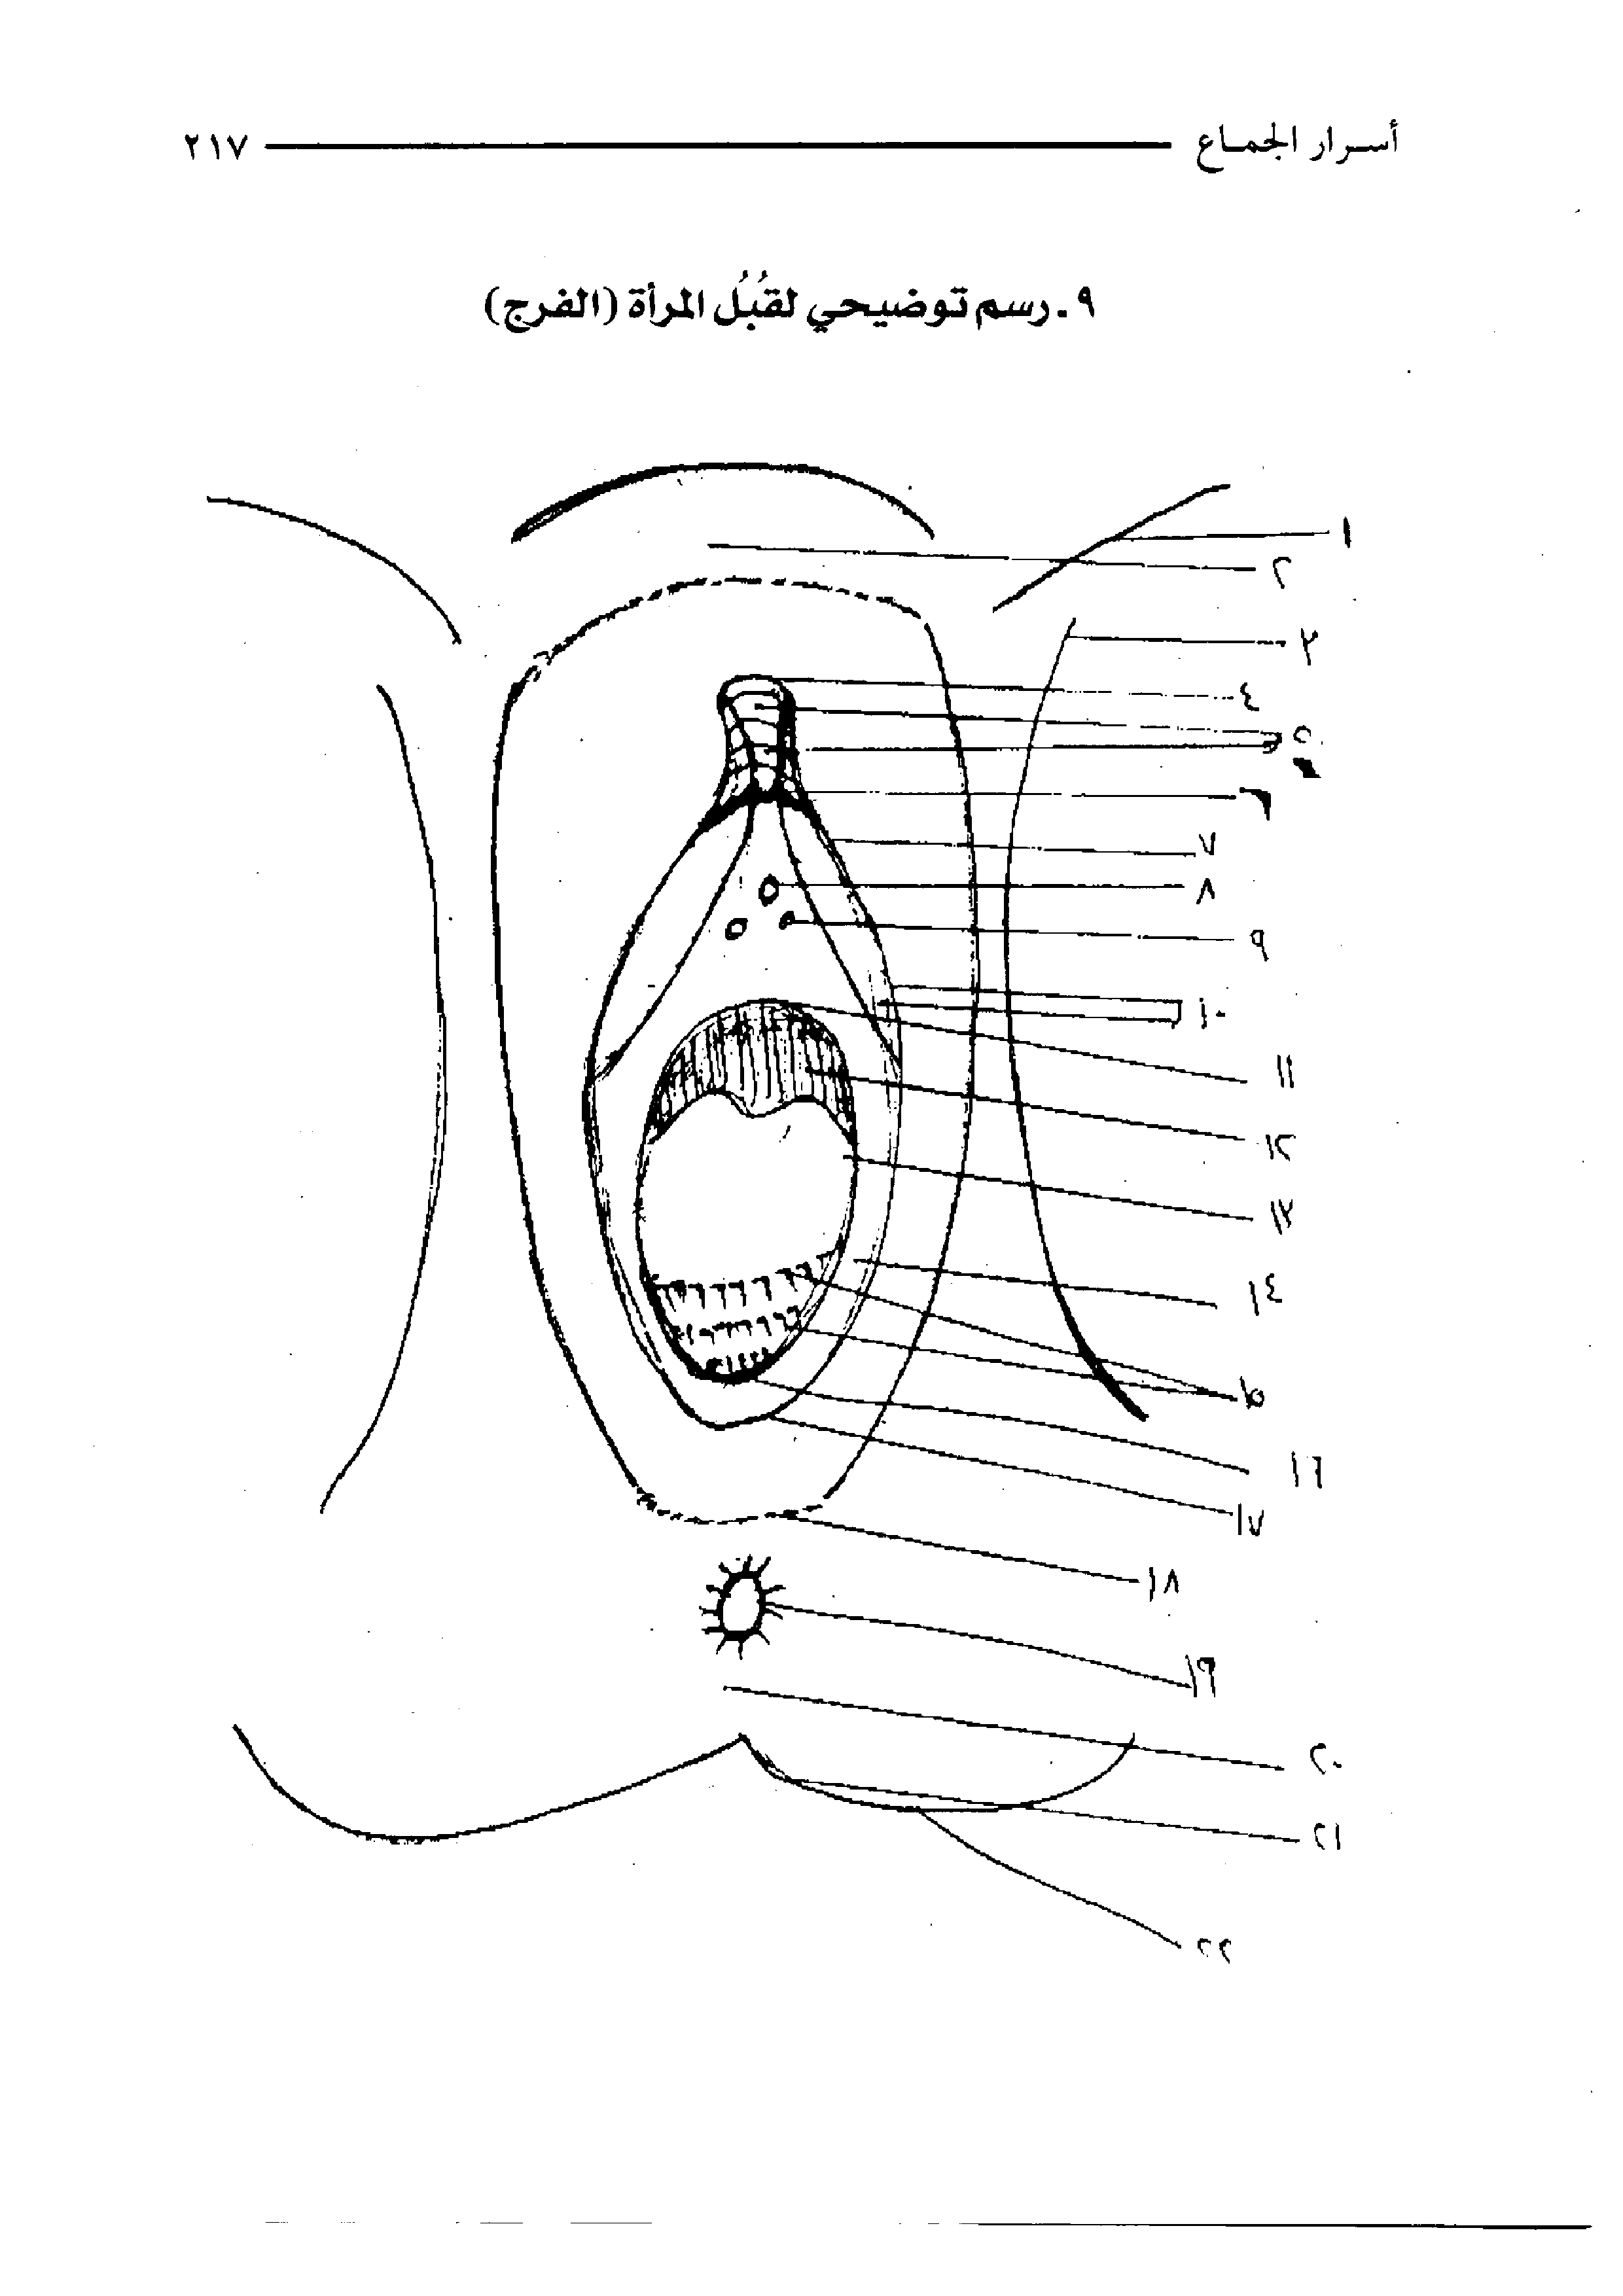 أسرار الجماع ٢١٧
٩. رسم توضيحي لقُبُل المرأة (الفرج)
١
٢
٣
٤
٥
٦
٧
٨
٩
١٠
١١
١٢
١٣
١٤
١٥
١٦
١٧
١٨
١٩
٢٠
٢١
٢٢